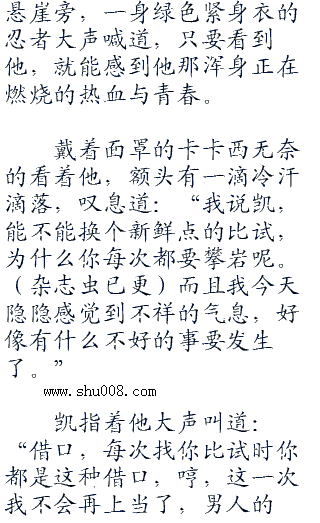 悬崖旁，一身绿色紧身衣的
忍者大声喊道，只要看到
他，就能感到他那浑身正在
燃烧的热血与青春。
戴着面罩的卡卡西无奈
的看着他，额头有一滴冷汗
滴落，叹息道：“我说凯，
能不能换个新鲜点的比试，
为什么你每次都要攀岩呢。
（杂志虫已更）而且我今天
隐隐感觉到不祥的气息，好
像有什么不好的事要发生
了。”
www.shu008.com
凯指着他大声叫道：
“借口，每次找你比试时你
都是这种借口，哼，这一次
我不会再上当了，男人的